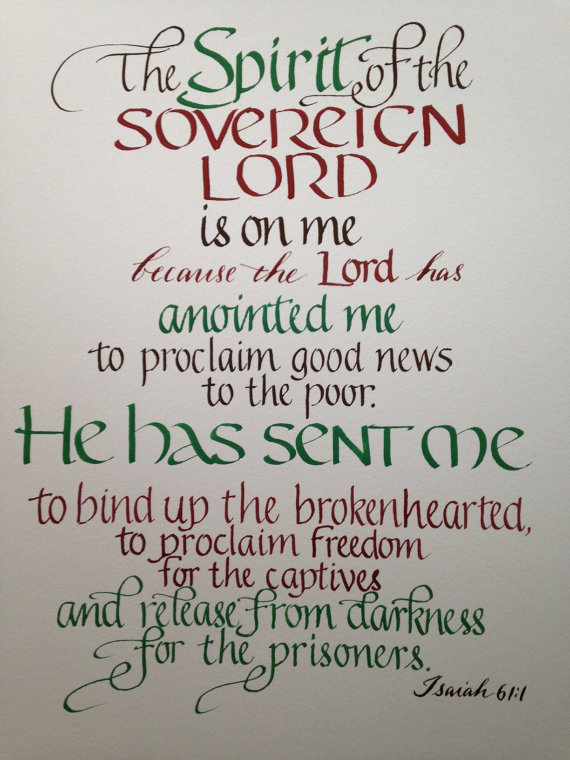 The Spirit of the
SOVEREIGN
LORD
is on me
because the Lord has
anointed me
to proclaim good news
to the poor.
He has sent me
to bind up the brokenhearted,
to proclaim freedom
for the captives
and release from darkness
for the prisoners.
Isaiah 61:1